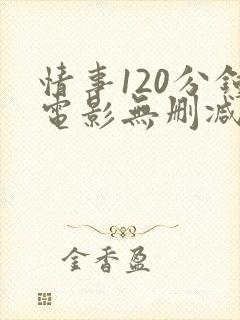 情事120分
電影無刪減
金香盈